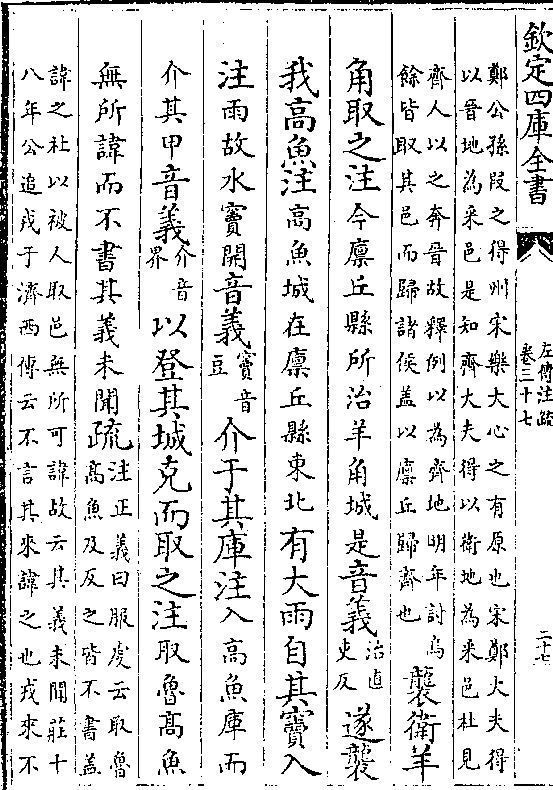 欽定四庫全書
左傳注疏
卷三十七
二十七
鄭公孫段之得州宋樂大心之有原也宋鄭大夫得
以晉地為采邑是知齊大夫得以衛地為采邑杜見
齊人以之奔晉故釋例以為齊地明年討烏
餘皆取其邑而歸諸侯盖以廪丘歸齊也
襲衛羊
角取之注今廪丘縣所治羊角城是音義
治直
吏反
遂襲
我高魚注高魚城在廪丘縣東北有大雨自其竇入
注雨故水竇開音義
竇音
豆
介于其庫注入高魚庫而
介其甲音義
介音
界
以登其城克而取之注取魯高魚
無所諱而不書其義未聞疏
注正義曰服虔云取魯
高魚及反之皆不書盖
諱之社以被人取邑無所可諱故云其義未聞莊十
八年公追戎于濟西傳云不言其來諱之也戎來不